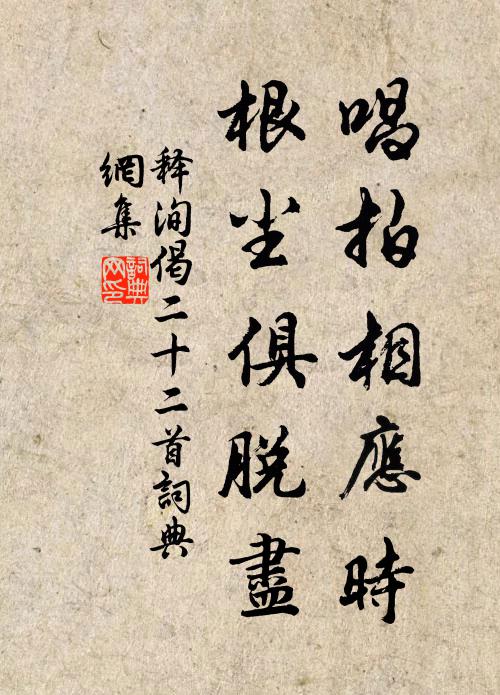 唱拍相應時
根尘俱脫盡
释洵偈二十二首詞典
網集
詞典网印